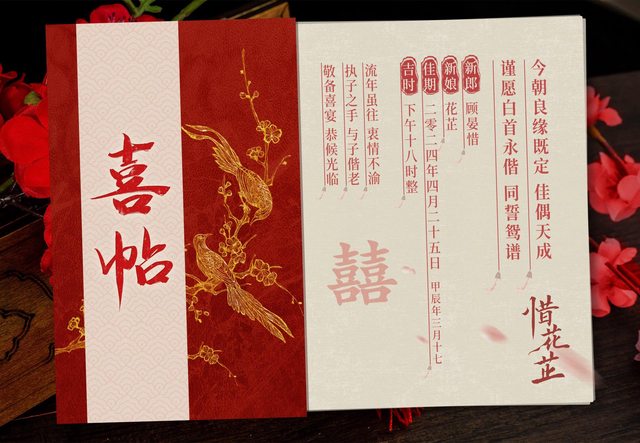 喜帖
今朝良缘既定 佳偶天成
谨愿白首永偕 同誓鸳谱
新郎 顾晏惜
新娘 花芷
佳期 二零二四年四月二十五日 甲辰年三月十七
吉时 下午十八时整
流年虽往 衷情不渝
执子之手 与子偕老
敬备喜宴 恭候光临
囍
惜花芷